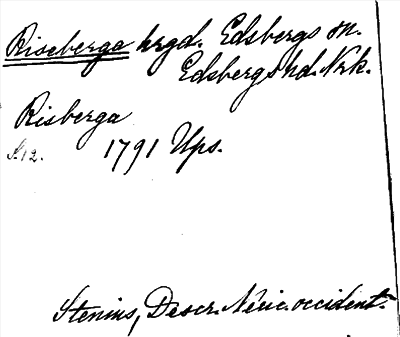 Riseberga hrgd. Edsbergs sn.
Edsbergs hd. Nrk.
Risberga
S. 12. 1791 Ups.
Stenius, Descr. Neric. occident.